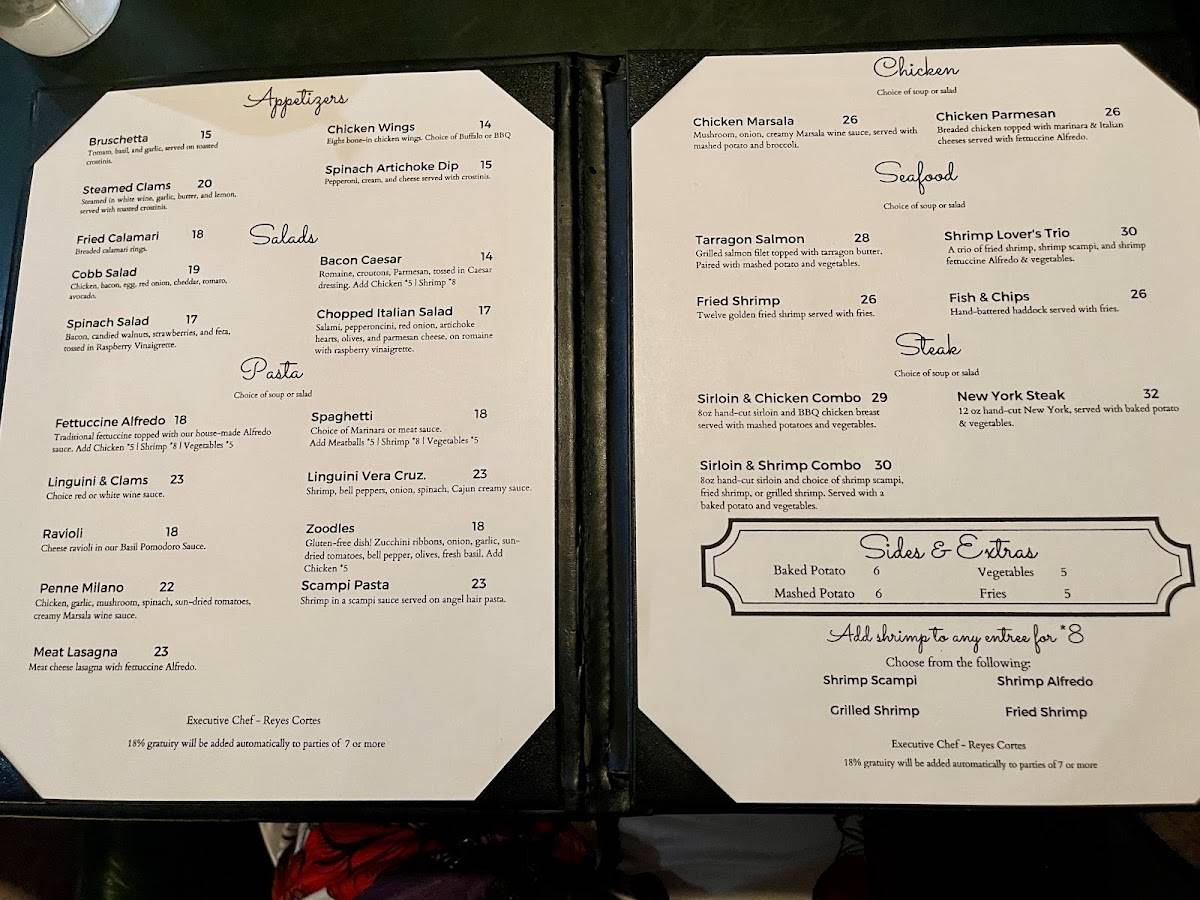 Appetizers
Bruschetta 15
Tomato, basil, and garlic, served on toasted
crostinis.
Chicken Wings 14
Eight bone-in chicken wings. Choice of Buffalo or BBQ
Steamed Clams 20
Steamed in white wine, garlic, butter, and lemon,
served with toasted crostinis.
Spinach Artichoke Dip 15
Pepperoni, cream, and cheese served with crostinis.
Fried Calamari 18
Breaded calamari rings.
Salads
Cobb Salad 19
Chicken, bacon, egg, red onion, cheddar, tomato,
avocado.
Bacon Caesar 14
Romaine, croutons, Parmesan, tossed in Caesar
dressing. Add Chicken *5 | Shrimp *8
Spinach Salad 17
Bacon, candied walnuts, strawberries, and feta,
tossed in Raspberry Vinaigrette.
Chopped Italian Salad 17
Salami, pepperoncini, red onion, artichoke
hearts, olives, and parmesan cheese, on romaine
with raspberry vinaigrette.
Pasta
Choice of soup or salad
Fettuccine Alfredo 18
Traditional fettuccine topped with our house-made Alfredo
sauce. Add Chicken *5 | Shrimp *8 | Vegetables *5
Spaghetti 18
Choice of Marinara or meat sauce.
Add Meatballs *5 | Shrimp *8 | Vegetables *5
Linguini & Clams 23
Choice red or white wine sauce.
Linguini Vera Cruz. 23
Shrimp, bell peppers, onion, spinach, Cajun creamy sauce.
Ravioli 18
Cheese ravioli in our Basil Pomodoro Sauce.
Zoodles 18
Gluten-free dish! Zucchini ribbons, onion, garlic, sun-
dried tomatoes, bell pepper, olives, fresh basil. Add
Chicken *5
Penne Milano 22
Chicken, garlic, mushroom, spinach, sun-dried tomatoes,
creamy Marsala wine sauce.
Scampi Pasta 23
Shrimp in a scampi sauce served on angel hair pasta.
Meat Lasagna 23
Meat cheese lasagna with fettuccine Alfredo.
Executive Chef - Reyes Cortes
18% gratuity will be added automatically to parties of 7 or more
Chicken
Choice of soup or salad
Chicken Marsala 26
Mushroom, onion, creamy Marsala wine sauce, served with
mashed potato and broccoli.
Chicken Parmesan 26
Breaded chicken topped with marinara & Italian
cheeses served with fettuccine Alfredo.
Seafood
Choice of soup or salad
Tarragon Salmon 28
Grilled salmon filet topped with tarragon butter.
Paired with mashed potato and vegetables.
Shrimp Lover's Trio 30
A trio of fried shrimp, shrimp scampi, and shrimp
fettuccine Alfredo & vegetables.
Fried Shrimp 26
Twelve golden fried shrimp served with fries.
Fish & Chips 26
Hand-battered haddock served with fries.
Steak
Choice of soup or salad
Sirloin & Chicken Combo 29
8oz hand-cut sirloin and BBQ chicken breast
served with mashed potatoes and vegetables.
New York Steak 32
12 oz hand-cut New York, served with baked potato
& vegetables.
Sirloin & Shrimp Combo 30
8oz hand-cut sirloin and choice of shrimp scampi,
fried shrimp, or grilled shrimp. Served with a
baked potato and vegetables.
Sides & Extras
Baked Potato 6 Vegetables 5
Mashed Potato 6 Fries 5
Add shrimp to any entree for *8
Choose from the following:
Shrimp Scampi Shrimp Alfredo
Grilled Shrimp Fried Shrimp
Executive Chef - Reyes Cortes
18% gratuity will be added automatically to parties of 7 or more